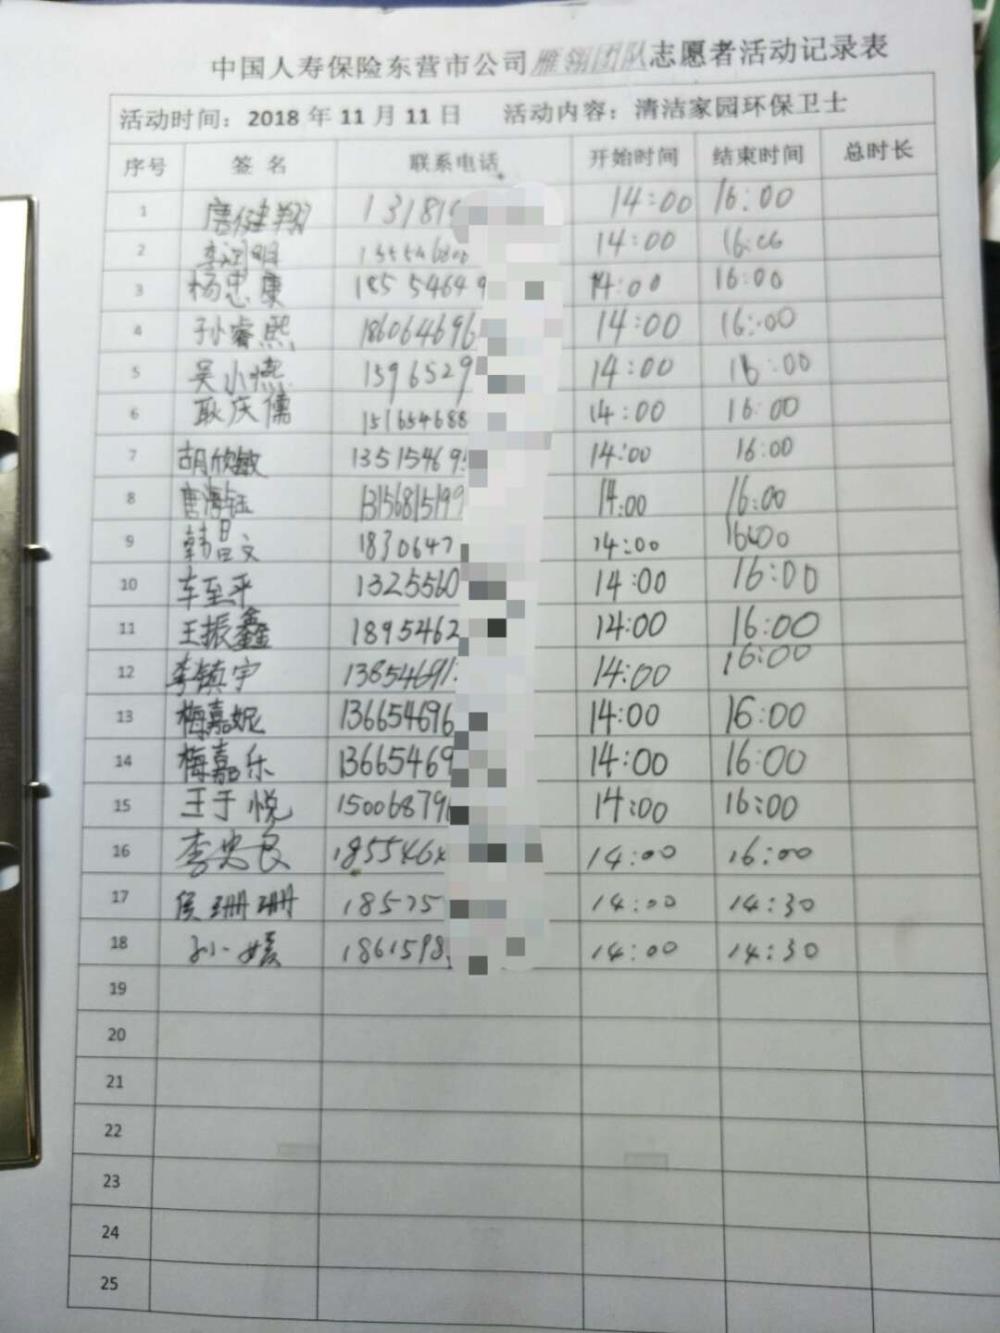 中国人寿保险东营市公司雁翎团队志愿者活动记录表
活动时间：2018 年 11 月 11 日 活动内容：清洁家园环保卫士
序号 签 名 联系电话 开始时间 结束时间 总时长
1 唐健翔 13181 14:00 16:00
2 14:00 16:00
3 杨忠康 18554649 14:00 16:00
4 孙睿熙 186064696 14:00 16:00
5 吴小燕 1596529 14:00 16:00
6 耿庆儒 151654688 14:00 16:00
7 胡欣敏 13515469 14:00 16:00
8 唐海钰 13156815199 14:00 16:00
9 韩昌文 1830647 14:00 16:00
10 车至平 1325560 14:00 16:00
11 王振鑫 1895462 14:00 16:00
12 李镇宇 13854691 14:00 16:00
13 梅嘉妮 136654696 14:00 16:00
14 梅嘉乐 13665469 14:00 16:00
15 王于悦 150068796 14:00 16:00
16 李忠良 185546 14:00 16:00
17 侯珊珊 18525 14:00 14:30
18 孙媛 1861598 14:00 14:30
19
20
21
22
23
24
25